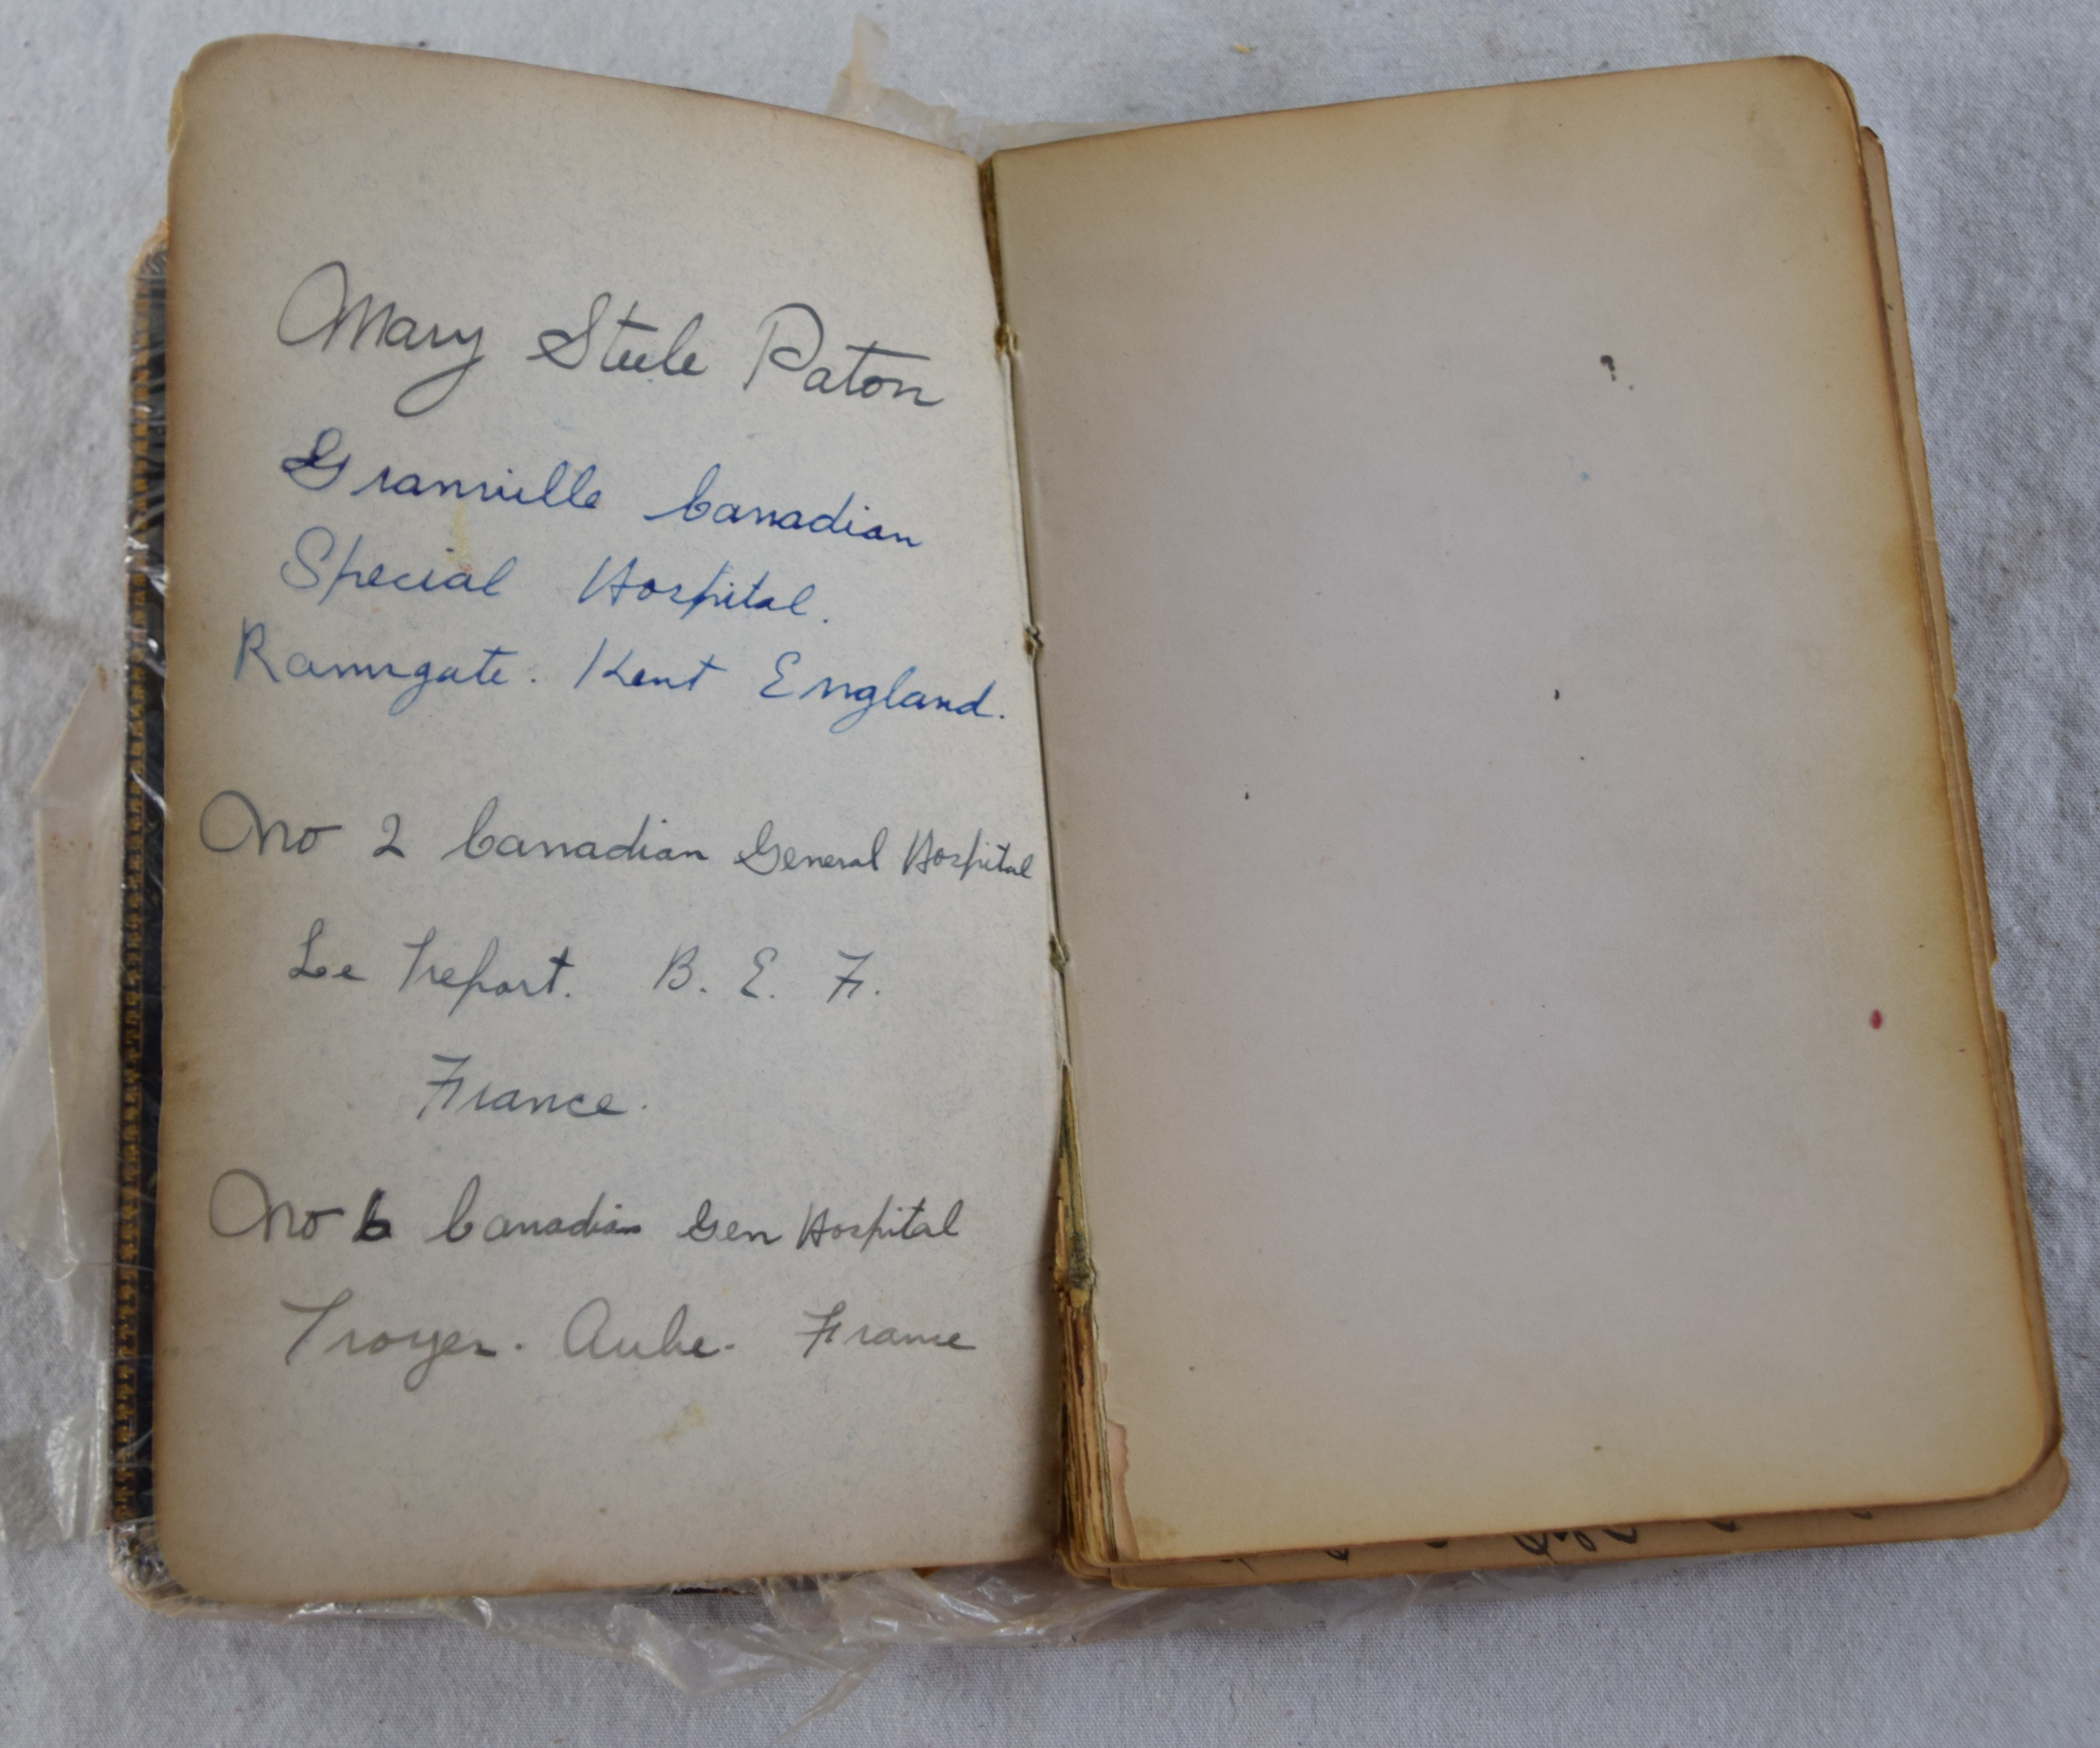 Mary Steele Paton
Granville Canadian
Special Hospital.
Ramsgate. Kent England.
No 2 Canadian General Hospital
Le Treport. B. E. F.
France.
No 6 Canadian Gen Hospital
Troyes. Aube. France